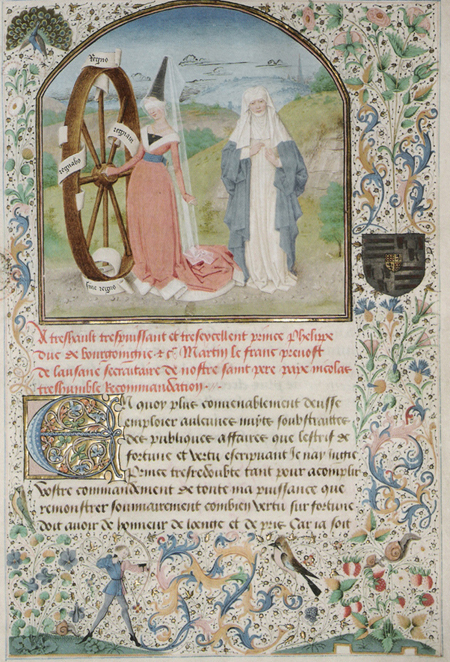 regno
regnaui
regnabo
sine regno
A treshault trespuissant et tresexcellent prince Phelippe
duc de bourgoingne &c. Martin le franc prevost
de lausane secretaire de nostre saint pere pape nicolas
treshumble Recommandation
En quoy plus convenablement deusse
employer aulcunes nuytz soubstraittes
des publicques affaires que lestrif de
fortune et vertu escripvant Je nay jugie
Prince tresredoubte tant pour acomplir
vostre commandment de toute ma puissance que
remonstrer sommairement combien vertu sur fortune
doit avoir de honneur de loenge et de pris Car ia soit